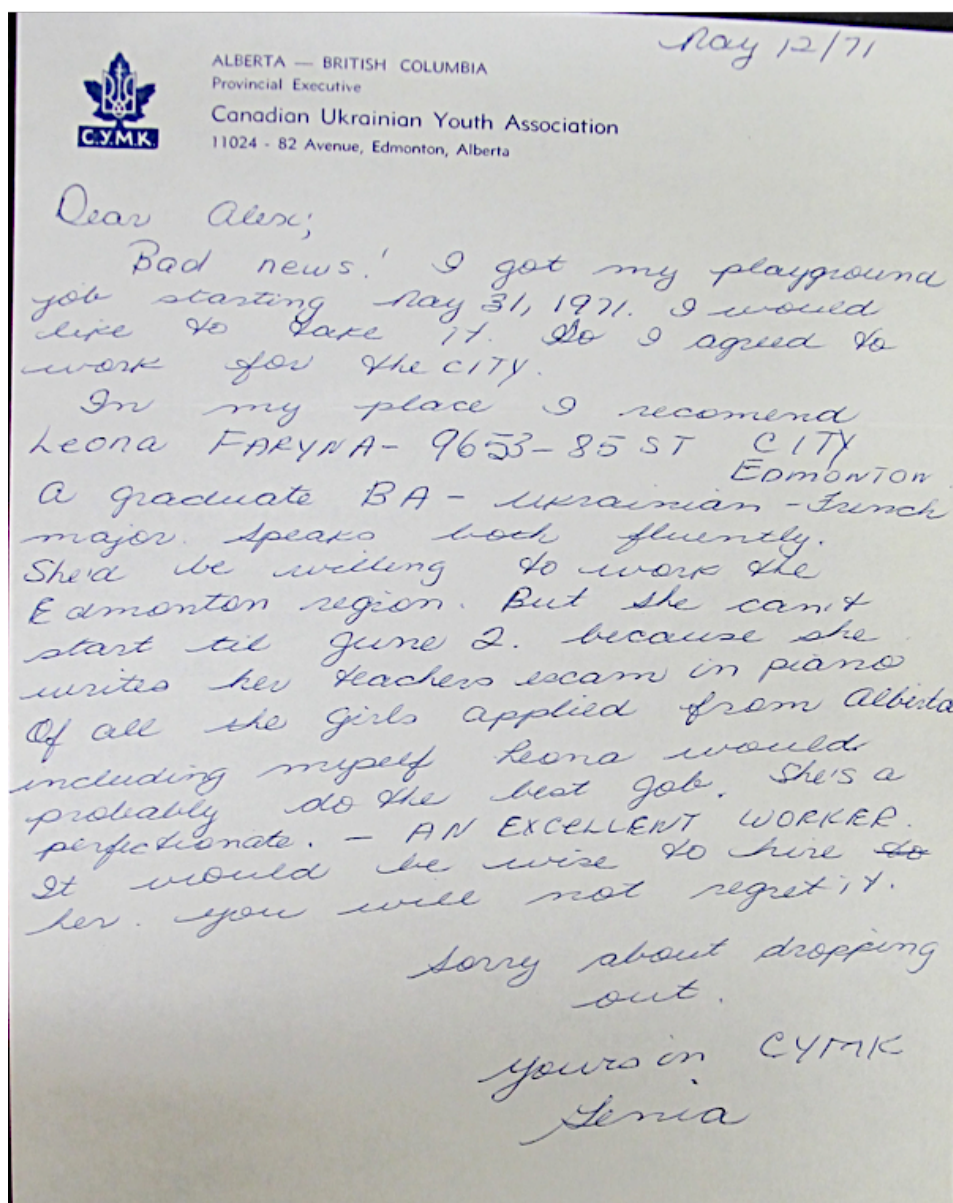 May 12/71
ALBERTA — BRITISH COLUMBIA
Provincial Executive
Canadian Ukrainian Youth Association
11024 - 82 Avenue, Edmonton, Alberta
С.У.М.К.
Dear Alex;
Bad news! I got my playground
job starting May 31, 1971. I would
like to take it. So I agreed to
work for the CITY.
In my place I recomend
Leona FARYNA - 9653 - 85 ST CITY
EDMONTON
A graduate BA - Ukrainian - French
major. Speaks both fluently.
She'd be willing to work the
Edmonton region. But she can't
start til June 2. because she
writes her teachers exam in piano
Of all the girls applied from Alberta
including myself Leona would
probably do the best job. She's a
perfectionate. - AN EXCELLENT WORKER.
It would be wise to hire to
her. You will not regret it.
Sorry about dropping
out.
Yours in CYMK
Genia